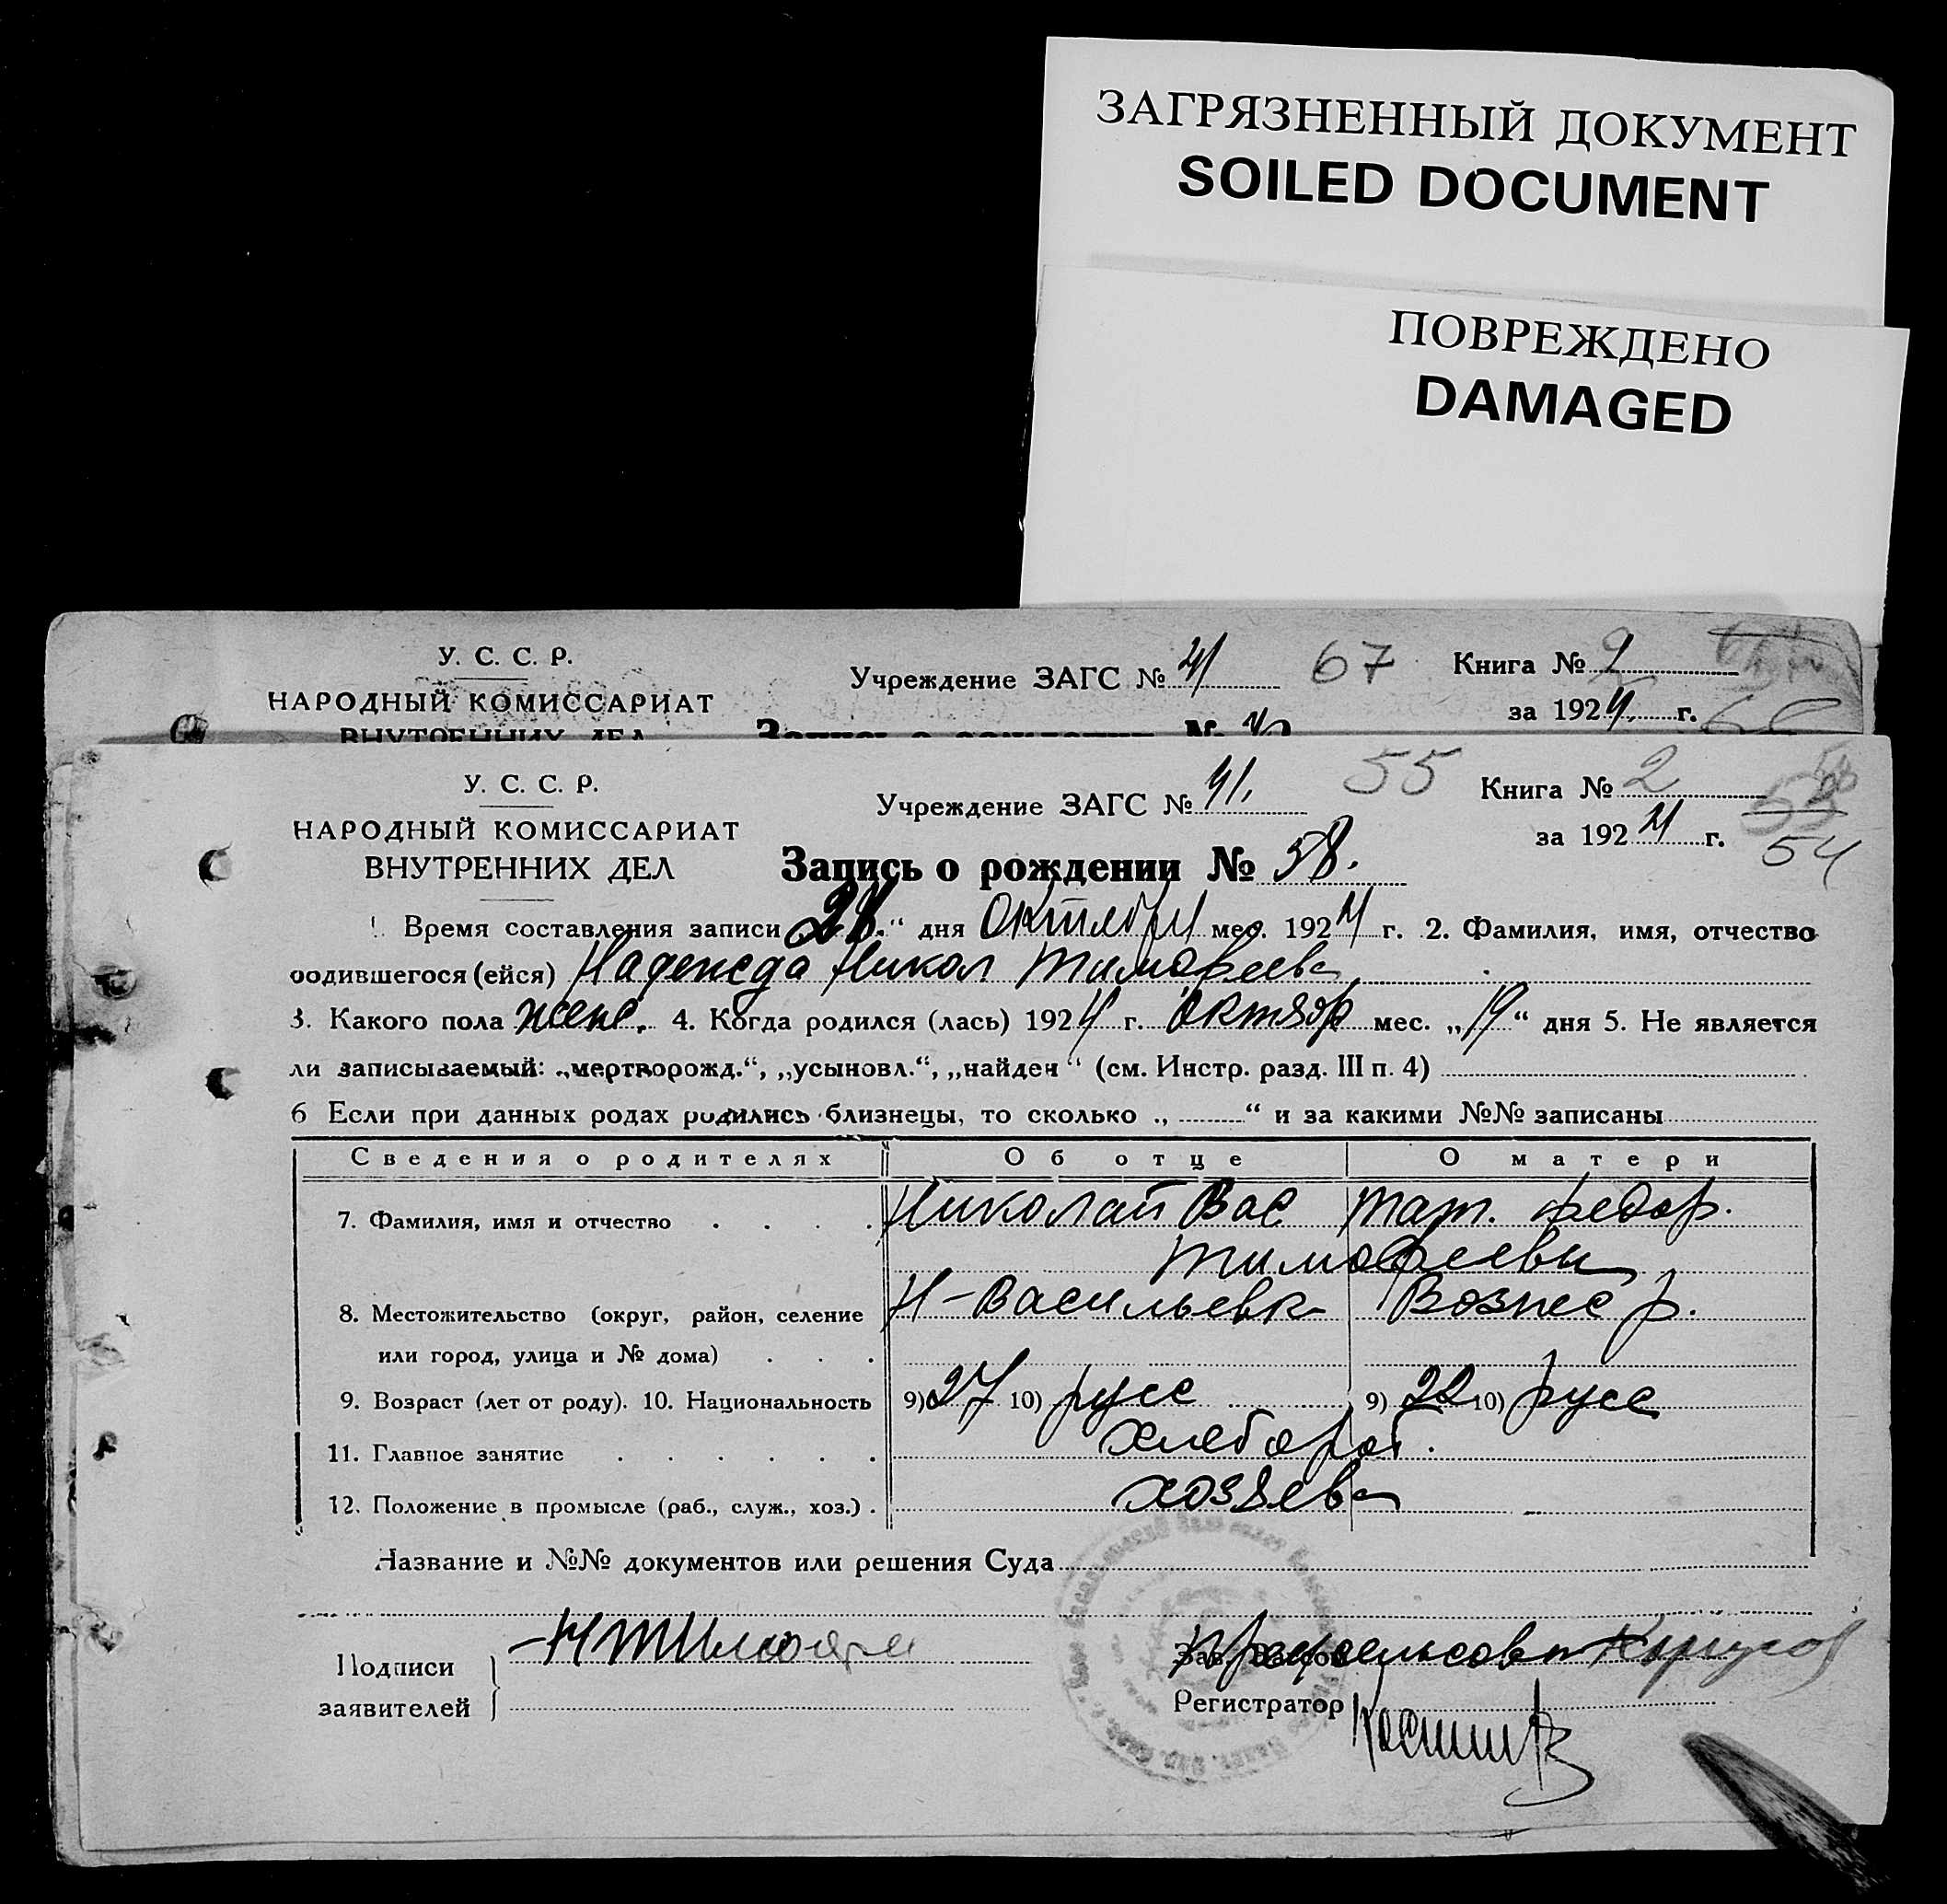 ЗАГРЯЗНЕННЫЙ ДОКУМЕНТ
SOILED DOCUMENT
ПОВРЕЖДЕНО
DAMAGED
У. С. С. Р.
НАРОДНЫЙ КОМИССАРИАТ
ВНУТРЕННИХ ДЕЛ
Учреждение ЗАГС № 41
67
Книга № 2
за 1924 г.
Запись о рождении №
У. С. С. Р.
НАРОДНЫЙ КОМИССАРИАТ
ВНУТРЕННИХ ДЕЛ
Учреждение ЗАГС № 41.
55
Книга № 2
за 1924 г.
54
Запись о рождении № 58.
1. Время составления записи „28.“ дня Октября мес. 1924 г. 2. Фамилия, имя, отчество
родившегося (ейся) Надежда Никол Тимофеева
3. Какого пола женс. 4. Когда родился (лась) 1924 г. Октябр мес. „19“ дня 5. Не является
ли записываемый: „мертворожд.“, „усыновл.“, „найден“ (см. Инстр. разд. III п. 4)
6 Если при данных родах родились близнецы, то сколько „ “ и за какими №№ записаны
Сведения о родителях Об отце О матери
7. Фамилия, имя и отчество Николай Вас Тат. Федор.
Тимофеевы
8. Местожительство (округ, район, селение Н-Васильевка Вознес р.
или город, улица и № дома)
9. Возраст (лет от роду). 10. Национальность 9) 27 10) русс 9) 22 10) русс
11. Главное занятие хлебороб.
12. Положение в промысле (раб., служ., хоз.) хозяева
Название и №№ документов или решения Суда
Подписи
заявителей
Н Тимофеев
Зав. Предсельсовета
Регистратор